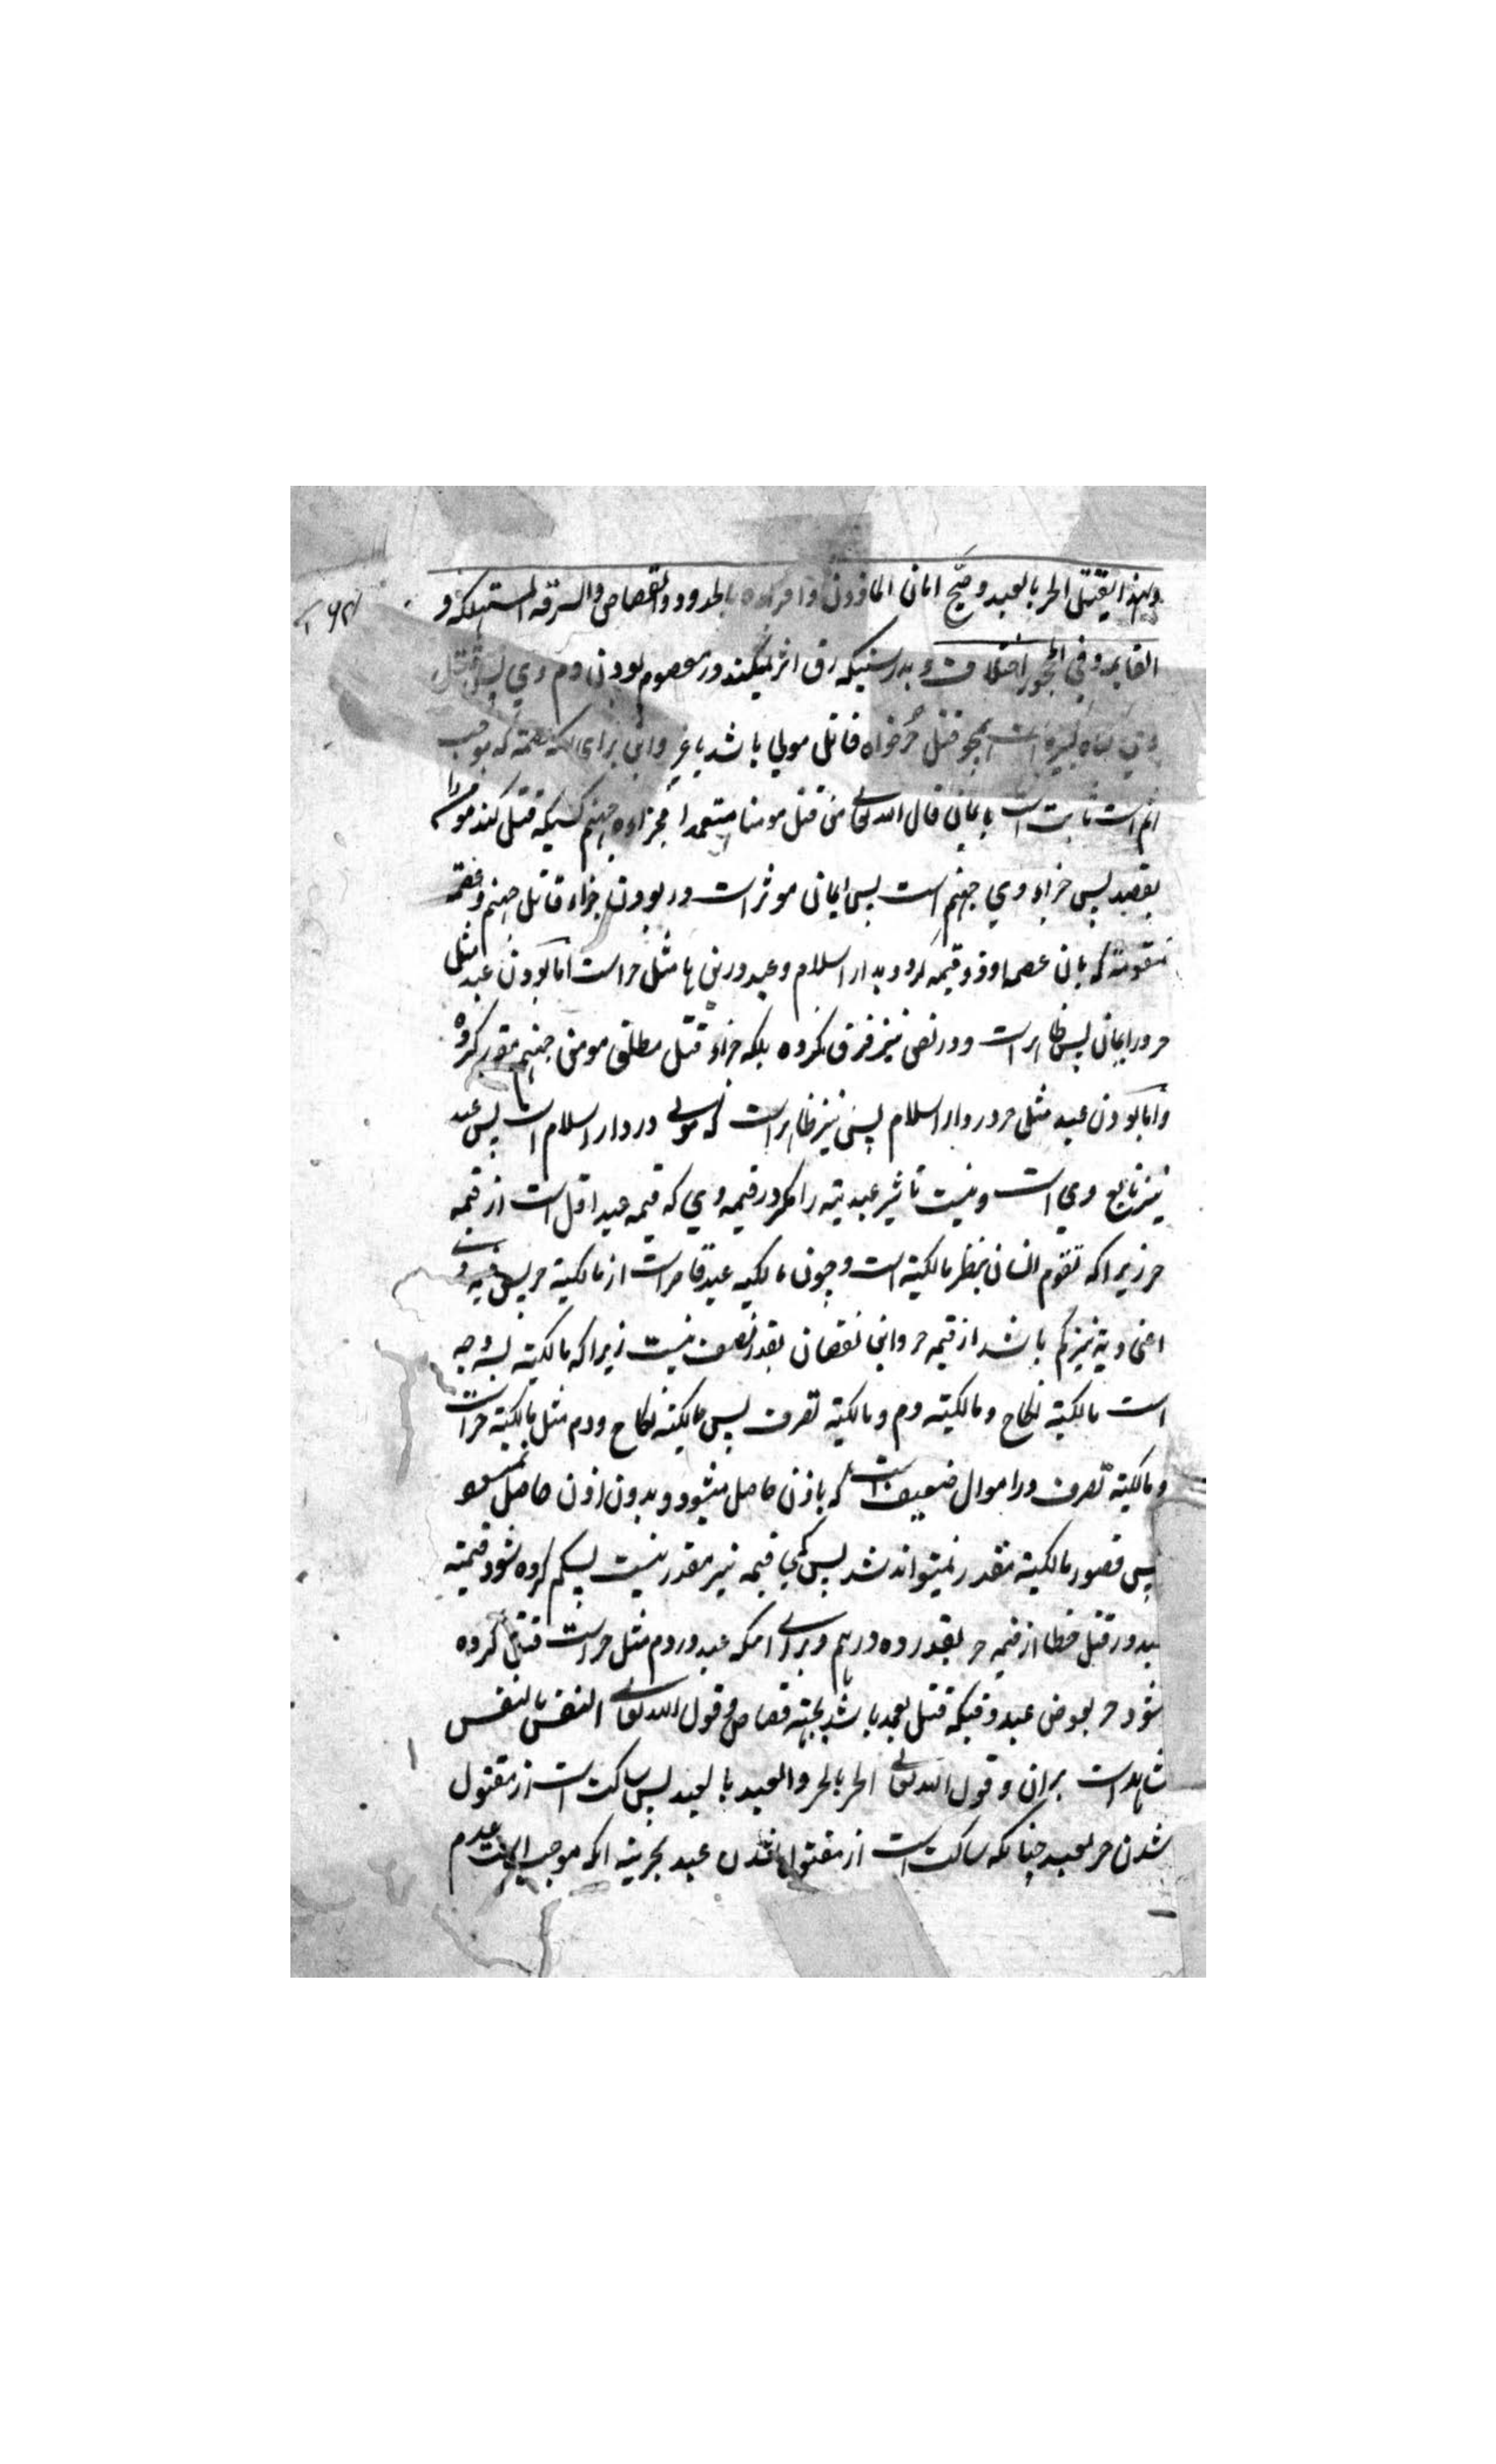 ولهذا یقتل الحر بالعبد وصح امان الماذون واقراره بالحدود والقصاص والسرقة المستهلکة و
القایمة وفی المحجور اختلاف و بدرستیکه رق اثر نمیکند در معصوم بودن دم وی پس قتل
وی گناه کبیره است همچو قتل حر خواه قاتل مولی باشد یا غیر واین برای انکه عصمة که موجب
اثم است ثابت است بایمان قال الله تعالی من قتل مومنا متعمدا فجزاوه جهنم کسیکه قتل کند مومن را
بقصد پس جزاء وی جهنم است پس ایمان موثر است در بودن جزاء قاتل جهنم وعصمة
متقومة که بان عصمة او ذو قیمة گردد بدار اسلام وعبد درین ها مثل حر است اما بودن عبد مثل
حر در ایمان پس ظاهر است و در نص نیز فرق نکرده بلکه جزاء قتل مطلق مومن جهنم مقرر کرده
واما بودن عبد مثل حر در دار اسلام پس نیز ظاهر است که مولی در دار اسلام است پس عبد
نیز تابع وی است ونیست تاثیر عبدیته را مگر در قیمه وی که قیمه عبد اقل است از قیمه
حر زیرا که تقوم انسان بنظر مالکیته است و چون مالکیه عبد قاصر است از مالکیته حر پس
باشد از قیمه حر واین نقصان بقدر نصف نیست زیرا که مالکیته بسه وجه
است مالکیته نکاح و مالکیته دم و مالکیته تصرف پس مالکیته نکاح و دم مثل مالکیته حر است
و مالکیته تصرف در اموال ضعیف است که باذن حاصل میشود و بدون اذن حاصل نمیشود
پس قصور مالکیته مقدر نمیتواند شد پس کمی قیمه نیز مقدر نیست پس کم کرده شود قیمته
عبد در قتل خطا از قیمه حر بقدر ده درهم و برای انکه عبد در دم مثل حر است قتل کرده
شود حر بعوض عبد وقتیکه قتل بعمد باشد بجهته قصاص و قول الله تعالی النفس بالنفس
شاهد است بران و قول الله تعالی الحر بالحر والعبد بالعبد پس ساکت است از مقتول
شدن حر بعبد چنانکه ساکت است از مقتول شدن عبد بحر نیه انکه موجب عدم